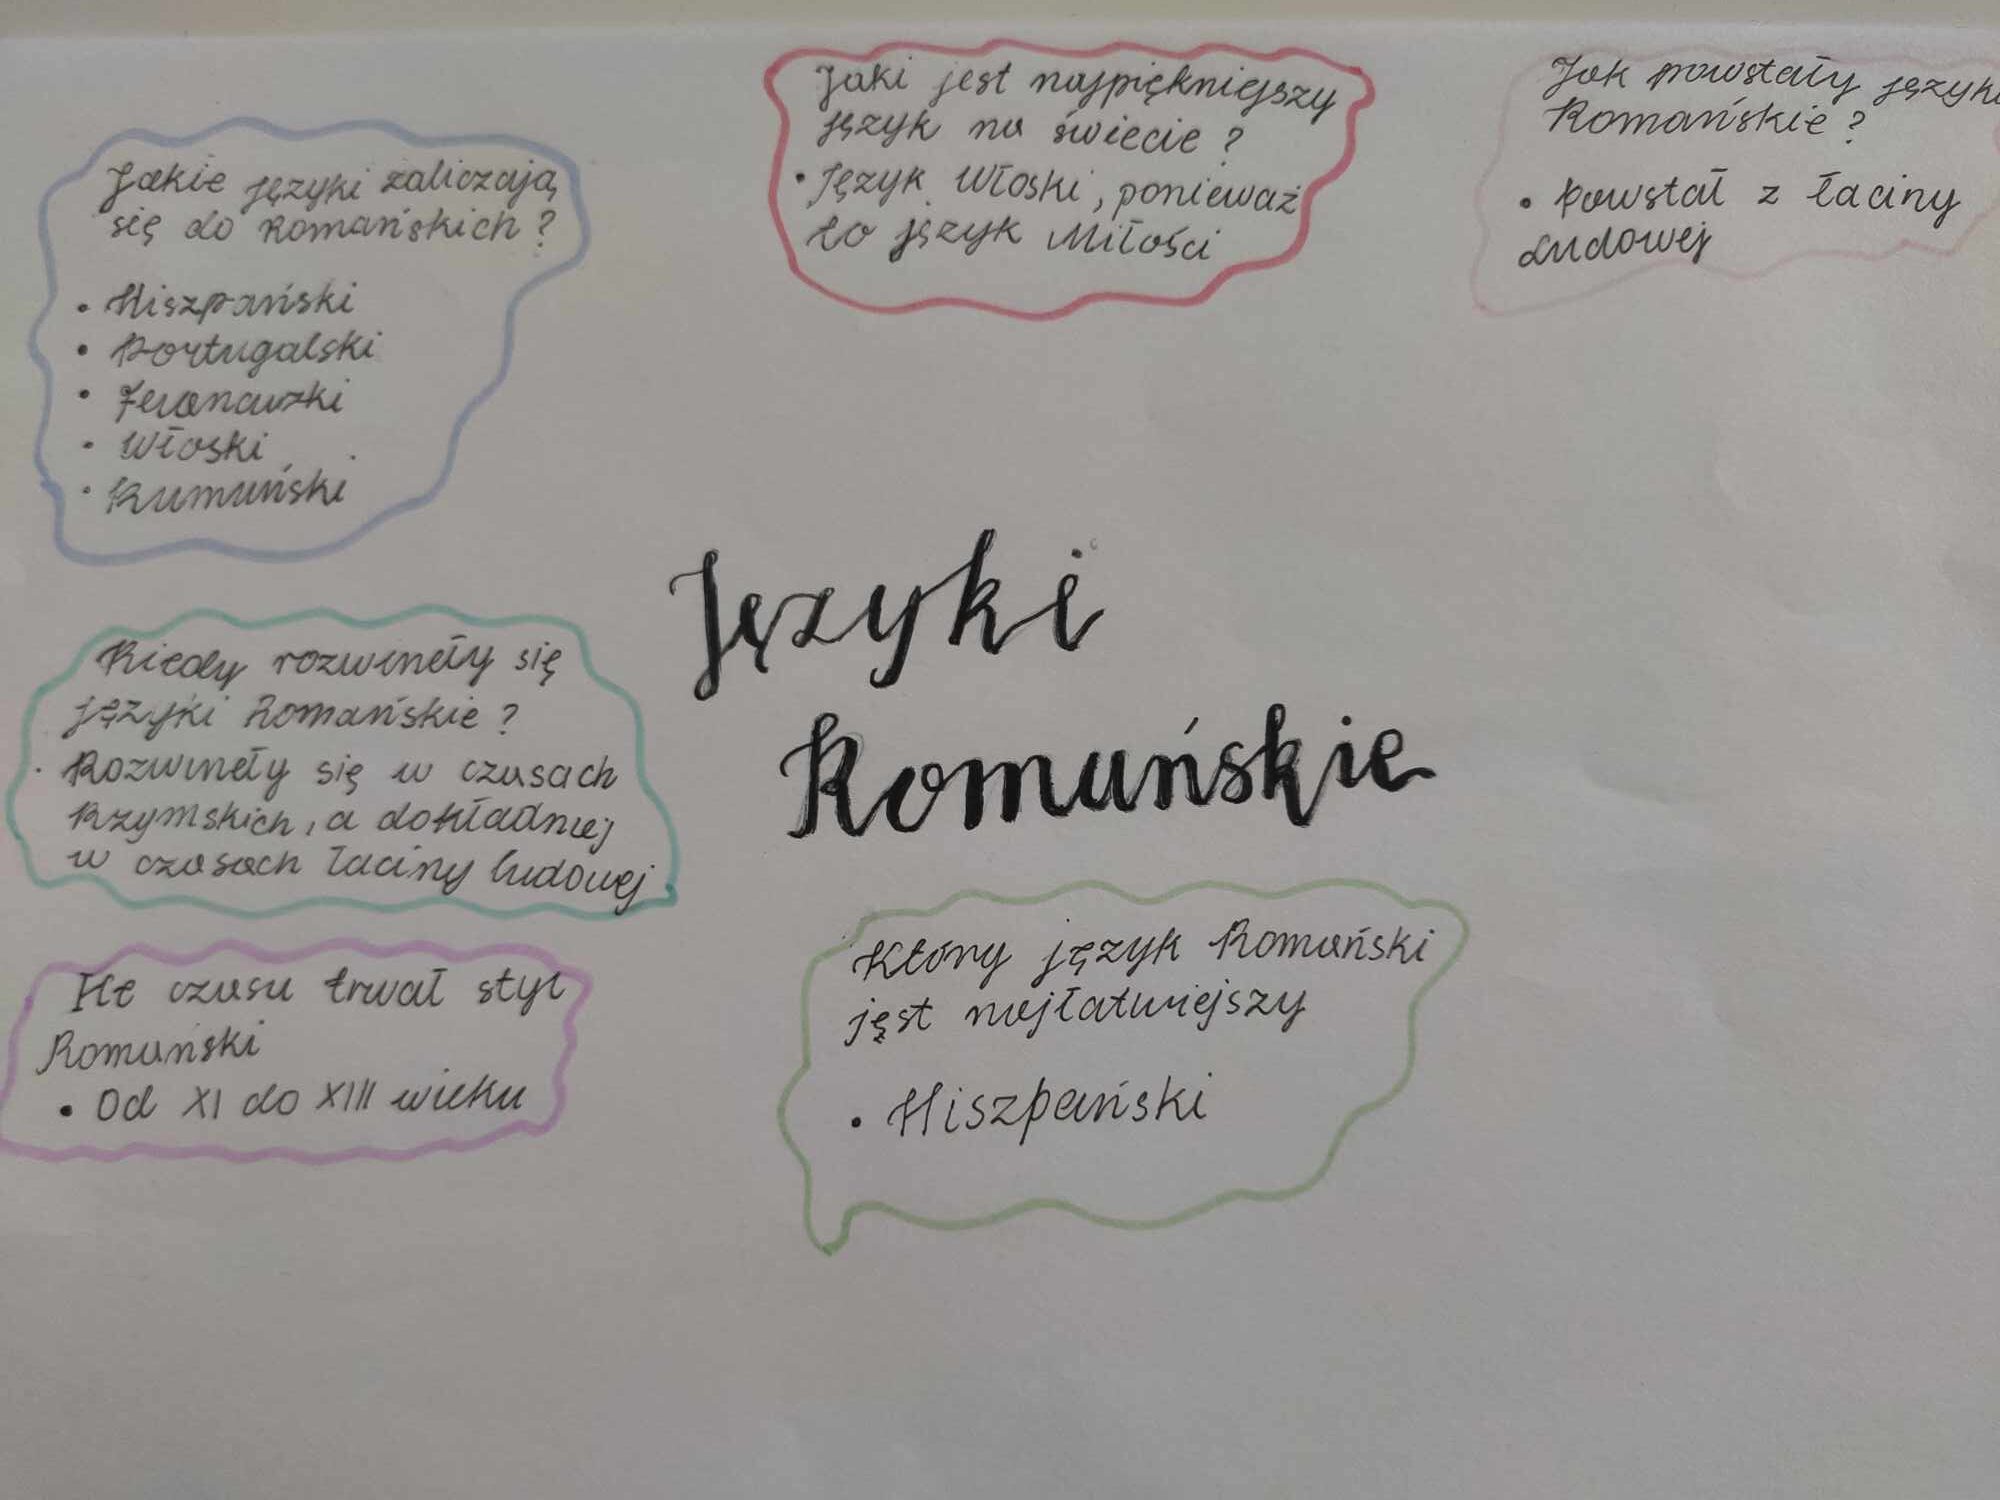 Jakie języki zaliczają
się do Romańskich?
• Hiszpański
• Portugalski
• Francuzki
• Włoski
• Rumuński
Jaki jest najpiękniejszy
język na świecie?
• Język Włoski, ponieważ
to język Miłości
Jak powstały języki
Romańskie?
• Powstał z łaciny
Ludowej
Języki
Romańskie
Kiedy rozwineły się
języki Romańskie?
• Rozwineły się w czasach
Rzymskich, a dokładniej
w czasach łaciny ludowej
Ile czasu trwał styl
Romański
• Od XI do XIII wieku
Który język Romański
jęst najłatwiejszy
• Hiszpański